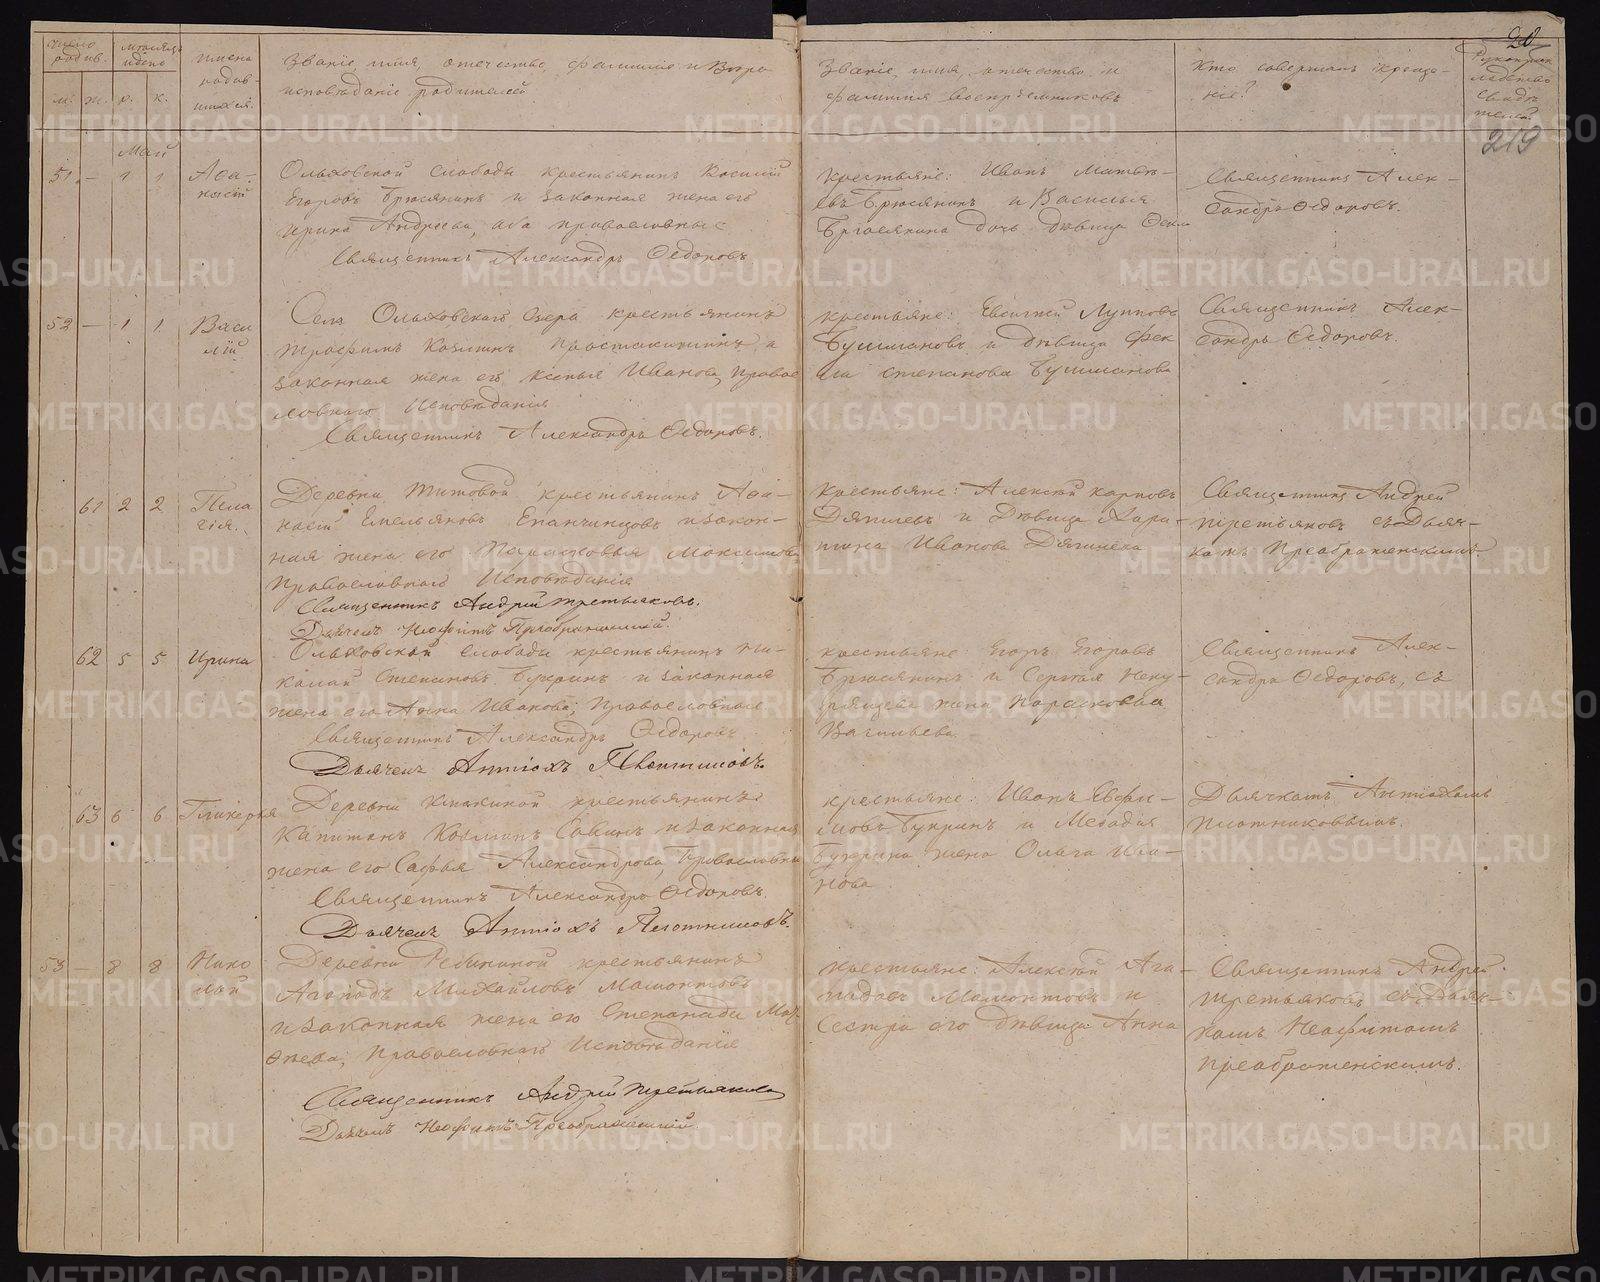 число родив.
мѣсяцъ и день
имена родив-
шихся.
м. ж. р. к.
Званіе, имя, отечество, фамилія и Вѣро
исповѣданіе родителей
Званіе, имя, отечество и
фамилія воспріемниковъ
Кто совершалъ креще-
ніе?
20
219
Май
51 – 1 1 Аѳа-
насій
Ольховской слободы крестьянинъ Василій
Егоровъ Брюсянинъ и законная жена его
Ирина Андреева, оба православные
Священникъ Александръ Ѳедоровъ
крестьяне: Иванъ Матвѣ-
евъ Брюсянинъ и Василья
Брюсянина дочь дѣвица
Священникъ Алек-
сандръ Ѳедоровъ.
52 – 1 1 Васи
лій
Села Ольховскаго Озера крестьянинъ
Трофимъ Козминъ и
законная жена его Ксенья Иванова, Правос
лавнаго Исповѣданія
Священникъ Александръ Ѳедоровъ.
крестьяне: Евсигней Лупповъ
Бушмановъ и дѣвица Фек
ла Степанова Бушманова
Священникъ Алек-
сандръ Ѳедоровъ.
61 2 2 Пела
гія.
Деревни Титовой крестьянинъ Аѳа-
насій Емельяновъ Епанчинцовъ и закон-
ная жена его Парасковья Максимова
Православнаго Исповѣданія
Священникъ Андрей Третьяковъ.
Дьячекъ Неофитъ Преображенскій.
крестьяне: Алексѣй Карповъ
и Дѣвица Хари-
тина Иванова
Священникъ Андрей
Третьяковъ съ Дьяч-
комъ Преображенскимъ
62 5 5 Ирина
Ольховской слободы крестьянинъ Ни-
колай Степановъ Букринъ и законная
жена его Анна Иванова, Православная
Священникъ Александръ Ѳедоровъ
Дьячекъ Антіохъ Плотниковъ.
крестьяне Егоръ Егоровъ
Брюсянинъ и Сергѣя
жена Парасковья
Васильева.
Священникъ Алек-
сандръ Ѳедоровъ, съ
63 6 6 Гликерья
Деревни крестьянинъ
Капитонъ Козминъ Савинъ и законная
жена его Софья Александрова, Православны
Священникъ Александръ Ѳедоровъ.
Дьячекъ Антіохъ Плотниковъ.
крестьяне: Иванъ Евфи-
мовъ Букринъ и Меѳодія
Букрина жена Ольга Ива-
нова
Дьячкомъ Антіохомъ
Плотниковымъ.
53 – 8 8 Нико
лай
Деревни крестьянинъ
Агаподъ Михайловъ Мамонтовъ
и законная жена его Степанида
Православнаго Исповѣданія
Священникъ Андрей Третьяковъ
Дьячекъ Неофитъ Преображенскій.
крестьяне: Алексѣй Ага-
подовъ Мамонтовъ и
Сестра его дѣвица Анна
Священникъ Андрей
Третьяковъ съ Дьяч-
комъ Неофитомъ
Преображенскимъ.
METRIKI.GASO-URAL.RU